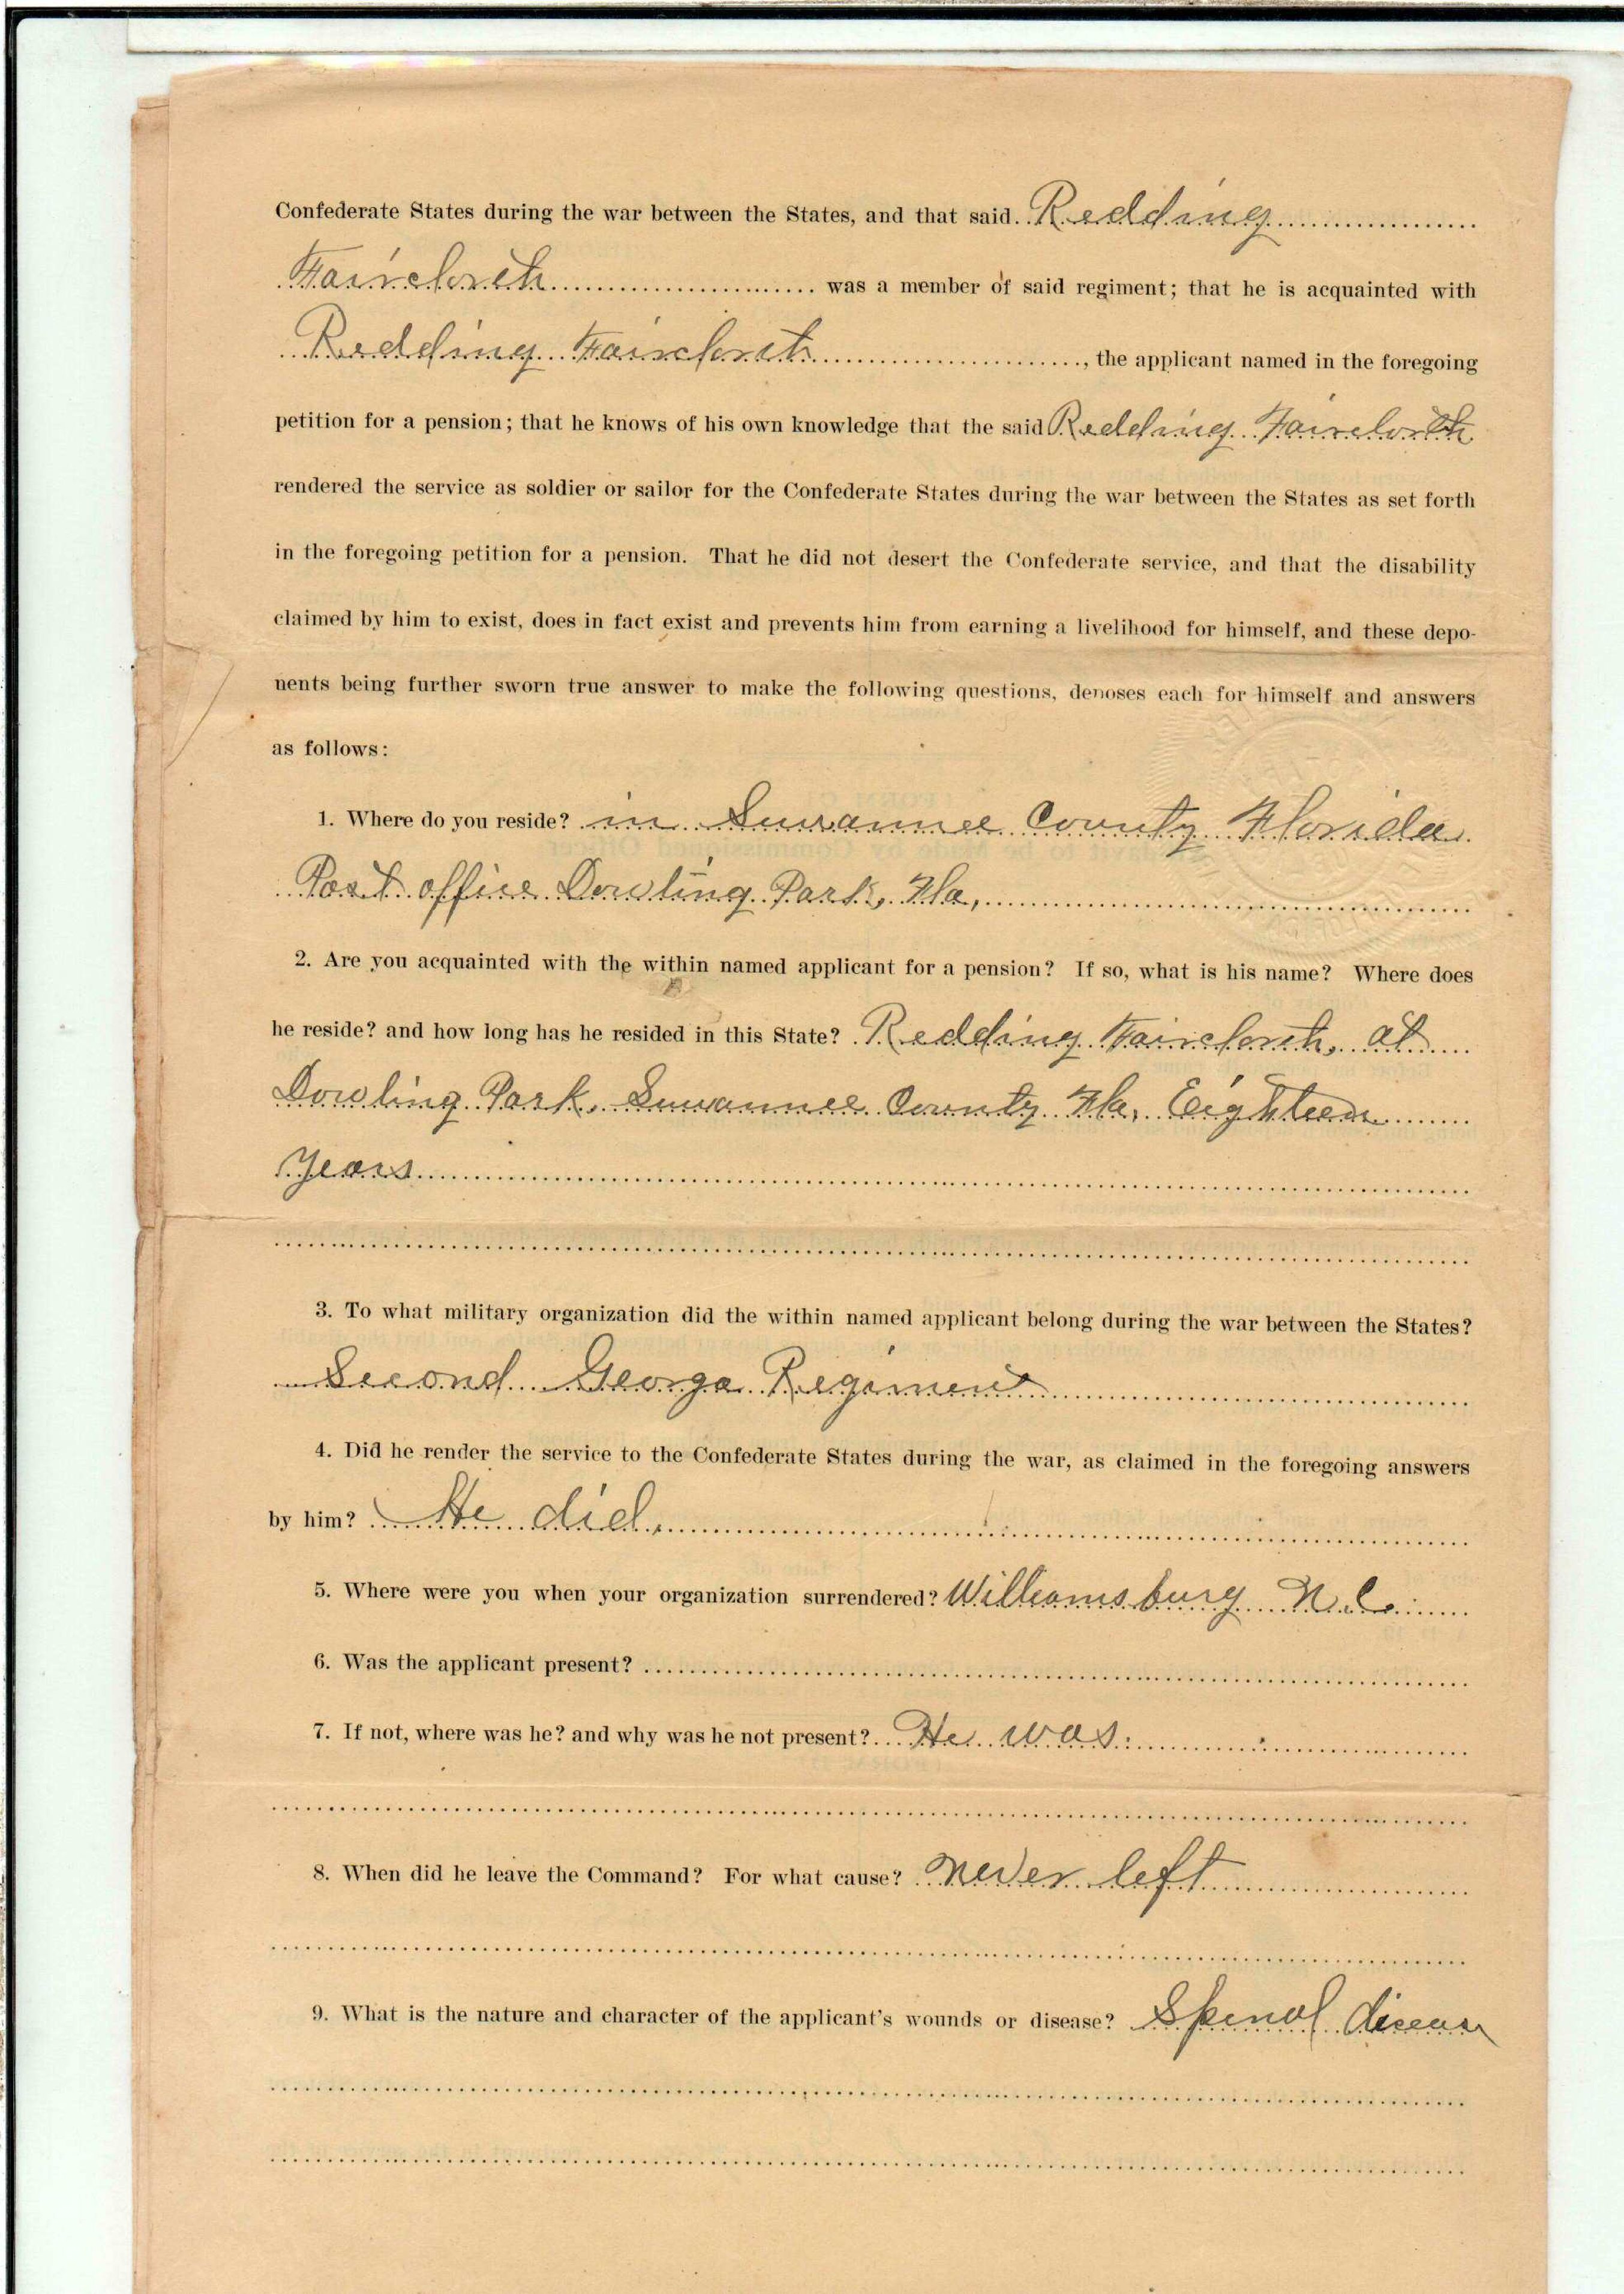 Confederate States during the war between the States, and that said Redding
Faircloth was a member of said regiment; that he is acquainted with
Redding Faircloth, the applicant named in the foregoing
petition for a pension; that he knows of his own knowledge that the said Redding Faircloth
rendered the service as soldier or sailor for the Confederate States during the war between the States as set forth
in the foregoing petition for a pension. That he did not desert the Confederate service, and that the disability
claimed by him to exist, does in fact exist and prevents him from earning a livelihood for himself, and these depo-
nents being further sworn true answer to make the following questions, deposes each for himself and answers
as follows:
1. Where do you reside? in Suwannee County Florida
Post office Dowling Park, Fla,
2. Are you acquainted with the within named applicant for a pension? If so, what is his name? Where does
he reside? and how long has he resided in this State? Redding Faircloth, at
Dowling Park, Suwannee County Fla, Eighteen
Years
3. To what military organization did the within named applicant belong during the war between the States?
Second Georga Regiment
4. Did he render the service to the Confederate States during the war, as claimed in the foregoing answers
by him? He did.
5. Where were you when your organization surrendered? Williamsburg N.C.
6. Was the applicant present?
7. If not, where was he? and why was he not present? He was.
8. When did he leave the Command? For what cause? never left
9. What is the nature and character of the applicant's wounds or disease? Spinal disease